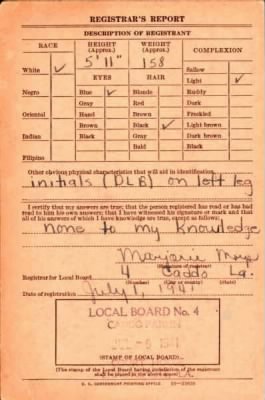 REGISTRAR'S REPORT
DESCRIPTION OF REGISTRANT
RACE HEIGHT (Approx.) WEIGHT (Approx.) COMPLEXION
5' 11" 158
White ✓ Sallow
EYES HAIR Light ✓
Negro Blue ✓ Blonde Ruddy
Gray Red Dark
Oriental Hazel Brown Freckled
Brown Black ✓ Light brown
Indian Black Gray Dark brown
Bald Black
Filipino
Other obvious physical characteristics that will aid in identification
initials (DLB) on left leg
I certify that my answers are true; that the person registered has read or has had
read to him his own answers; that I have witnessed his signature or mark and that
all of his answers of which I have knowledge are true, except as follows:
none to my knowledge
Marjorie
(Signature of registrar)
Registrar for Local Board 4 Caddo La.
(Number) (City or county) (State)
Date of registration July 1, 1941
LOCAL BOARD No. 4
CADDO PARISH
(STAMP OF LOCAL BOARD)
(The stamp of the Local Board having jurisdiction of the registrant
shall be placed in the above space.)
U. S. GOVERNMENT PRINTING OFFICE